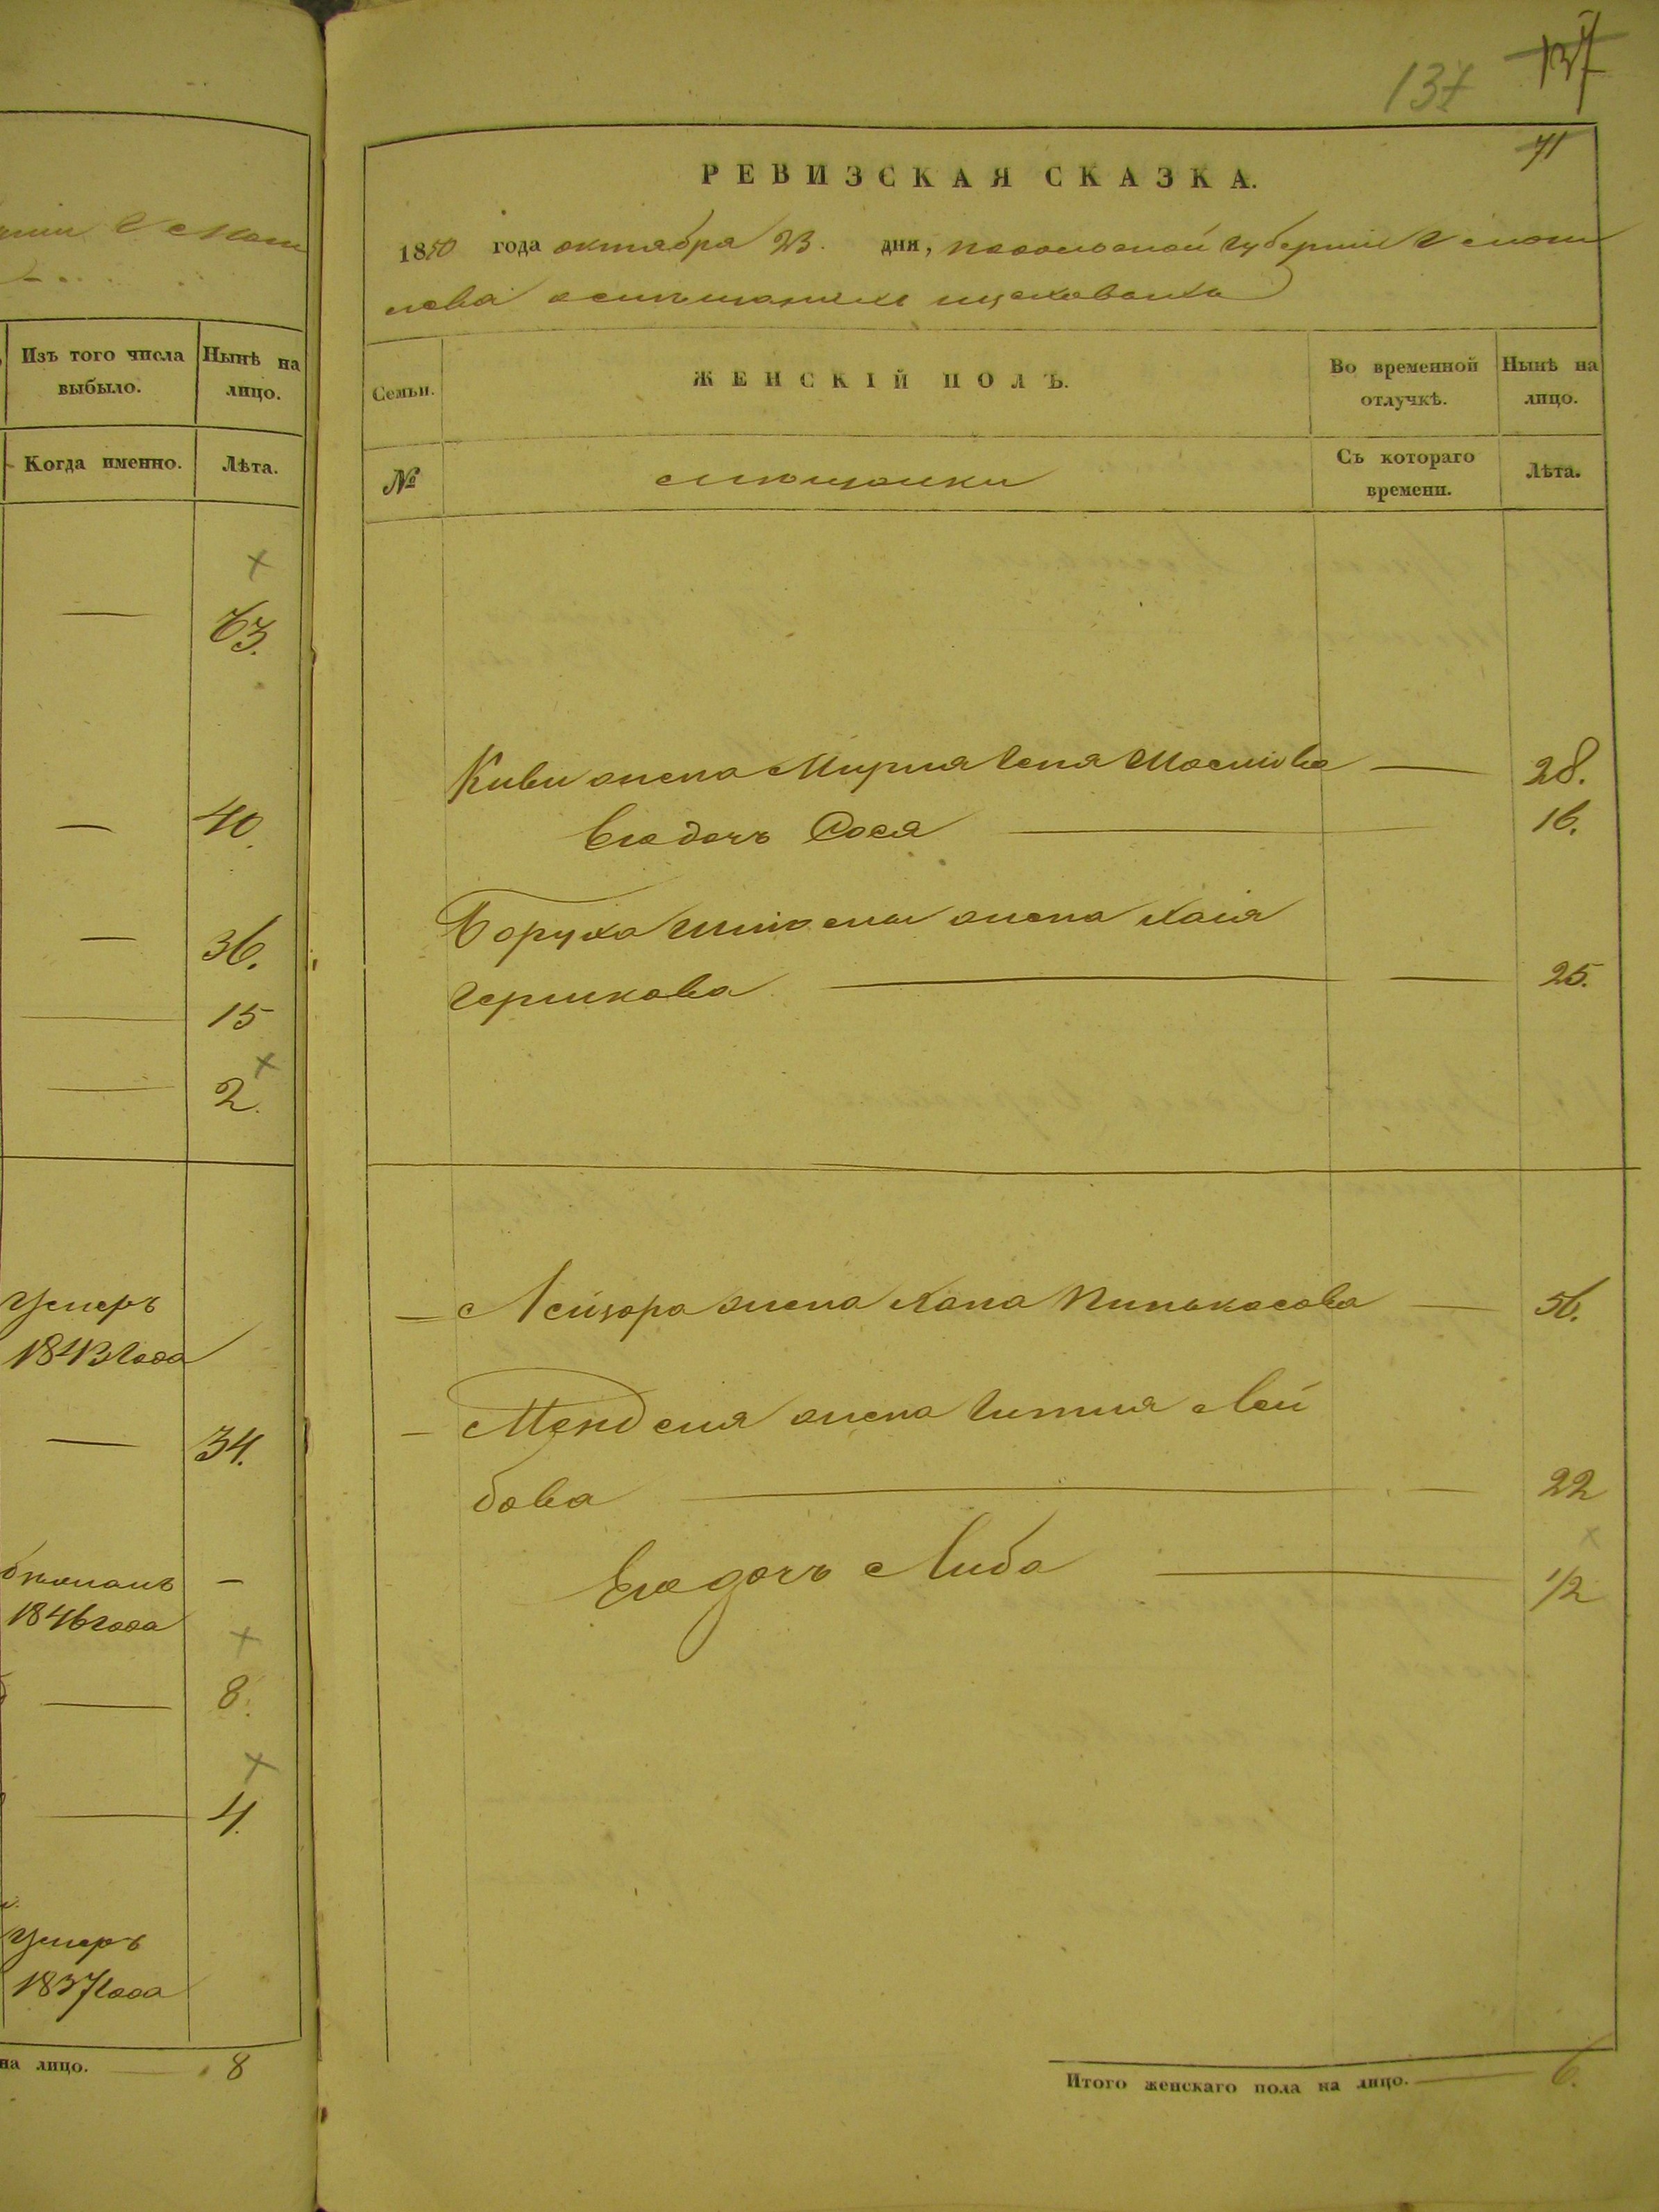 137 137
71
РЕВИЗСКАЯ СКАЗКА.
1850 года октября 23. дня, Подольской губерніи
ЖЕНСКІЙ ПОЛЪ.
Семьи.
Во временной отлучкѣ.
Нынѣ на лицо.
№
мѣщанки
Съ котораго времени.
Лѣта.
Киви жена Мирля Геня Мошкова — 28.
Его дочь Сося — 16.
Боруха жена Хая
Гершкова — 25.
— Лейзора жена Хана Пинькасова — 56.
— Менделя жена Гитля Лей
бова — 22
Его дочь Либа — 1/2
Итого женскаго пола на лицо. — 6.
Изъ того числа выбыло.
Нынѣ на лицо.
Когда именно.
Лѣта.
— 63.
— 40.
— 36.
— 15
— 2.
Умеръ
1843 года
— 34.
—
1846 года
— 8.
— 4.
Умеръ
1837 года
на лицо. — 8